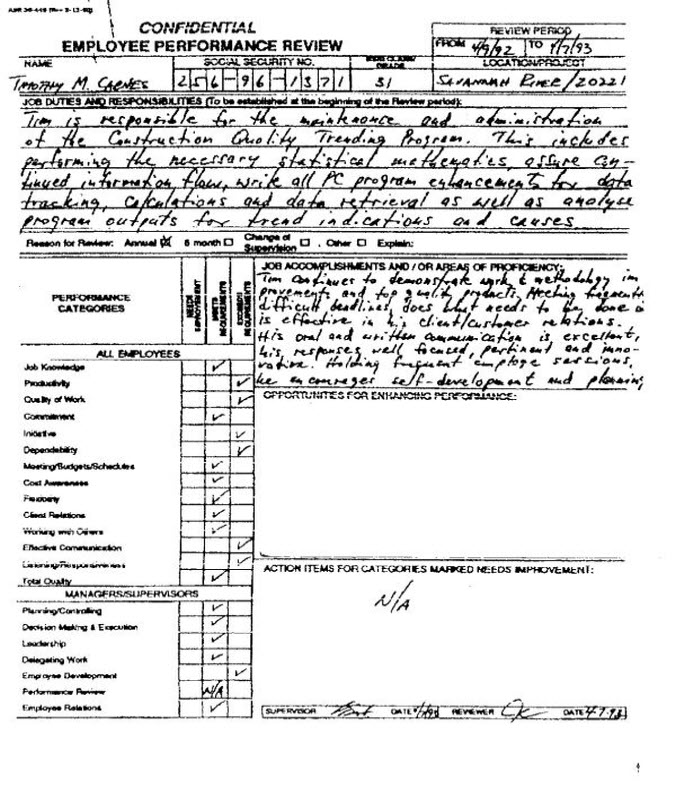 CONFIDENTIAL
EMPLOYEE PERFORMANCE REVIEW
REVIEW PERIOD
FROM 4/9/92 TO 4/7/93
NAME SOCIAL SECURITY NO. GRADE LOCATION/PROJECT
TIMOTHY M. CARNES 256-96-1371 31 SAVANNAH RIVER/20221
JOB DUTIES AND RESPONSIBILITIES (To be established at the beginning of the Review period):
Tim is responsible for the maintenance and administration
of the Construction Quality Trending Program. This includes
performing the necessary statistical mathematics, assure con-
tinued information flow, write all PC program enhancements for data
tracking, calculations and data retrieval as well as analyse
program outputs for trend indications and causes
Reason for Review: Annual 6 month Change of Supervision , Other Explain:
PERFORMANCE
CATEGORIES
NEEDS IMPROVEMENT
MEETS REQUIREMENTS
EXCEEDS REQUIREMENTS
JOB ACCOMPLISHMENTS AND / OR AREAS OF PROFICIENCY:
Tim continues to demonstrate work & methodology im
provements and top quality products. Meeting frequent
difficult deadlines, does what needs to be done
is effective in his client/customer relations.
His oral and written communication is excellent,
his responses well focused, pertinent and inno-
vative. Holding frequent employee sessions,
he encourages self-development and planning
ALL EMPLOYEES
Job Knowledge
Productivity
Quality of Work
Commitment
Initiative
Dependability
Meeting/Budgets/Schedules
Cost Awareness
Flexibility
Client Relations
Working with Others
Effective Communication
Listening/Responsiveness
Total Quality
OPPORTUNITIES FOR ENHANCING PERFORMANCE:
ACTION ITEMS FOR CATEGORIES MARKED NEEDS IMPROVEMENT:
N/A
MANAGERS/SUPERVISORS
Planning/Controlling
Decision Making & Execution
Leadership
Delegating Work
Employee Development
Performance Review N/A
Employee Relations
SUPERVISOR DATE REVIEWER DATE 4-7-93